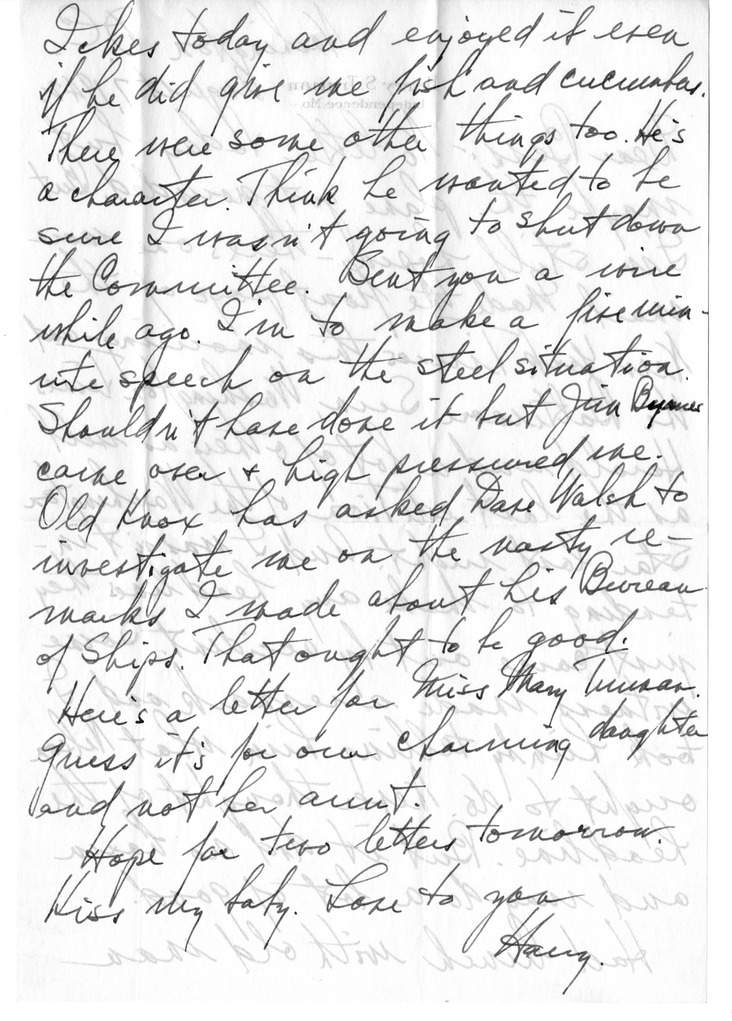 Ickes today and enjoyed it even
if he did give me fish and cucumbers.
There were some other things too. He's
a character. Think he wanted to be
sure I wasn't going to shut down
the Committee. Sent you a wire
while ago. I'm to make a five min-
ute speech on the steel situation.
Shouldn't have done it but Jim Byrnes
came over & high pressured me.
Old Knox has asked Dave Walsh to
investigate me on the nasty re-
marks I made about his Bureau
of Ships. That ought to be good.
Here's a letter for Miss Mary Truman.
Guess it's for our charming daughter
and not her aunt.
Hope for two letters tomorrow.
Kiss my baby. Love to you
Harry.